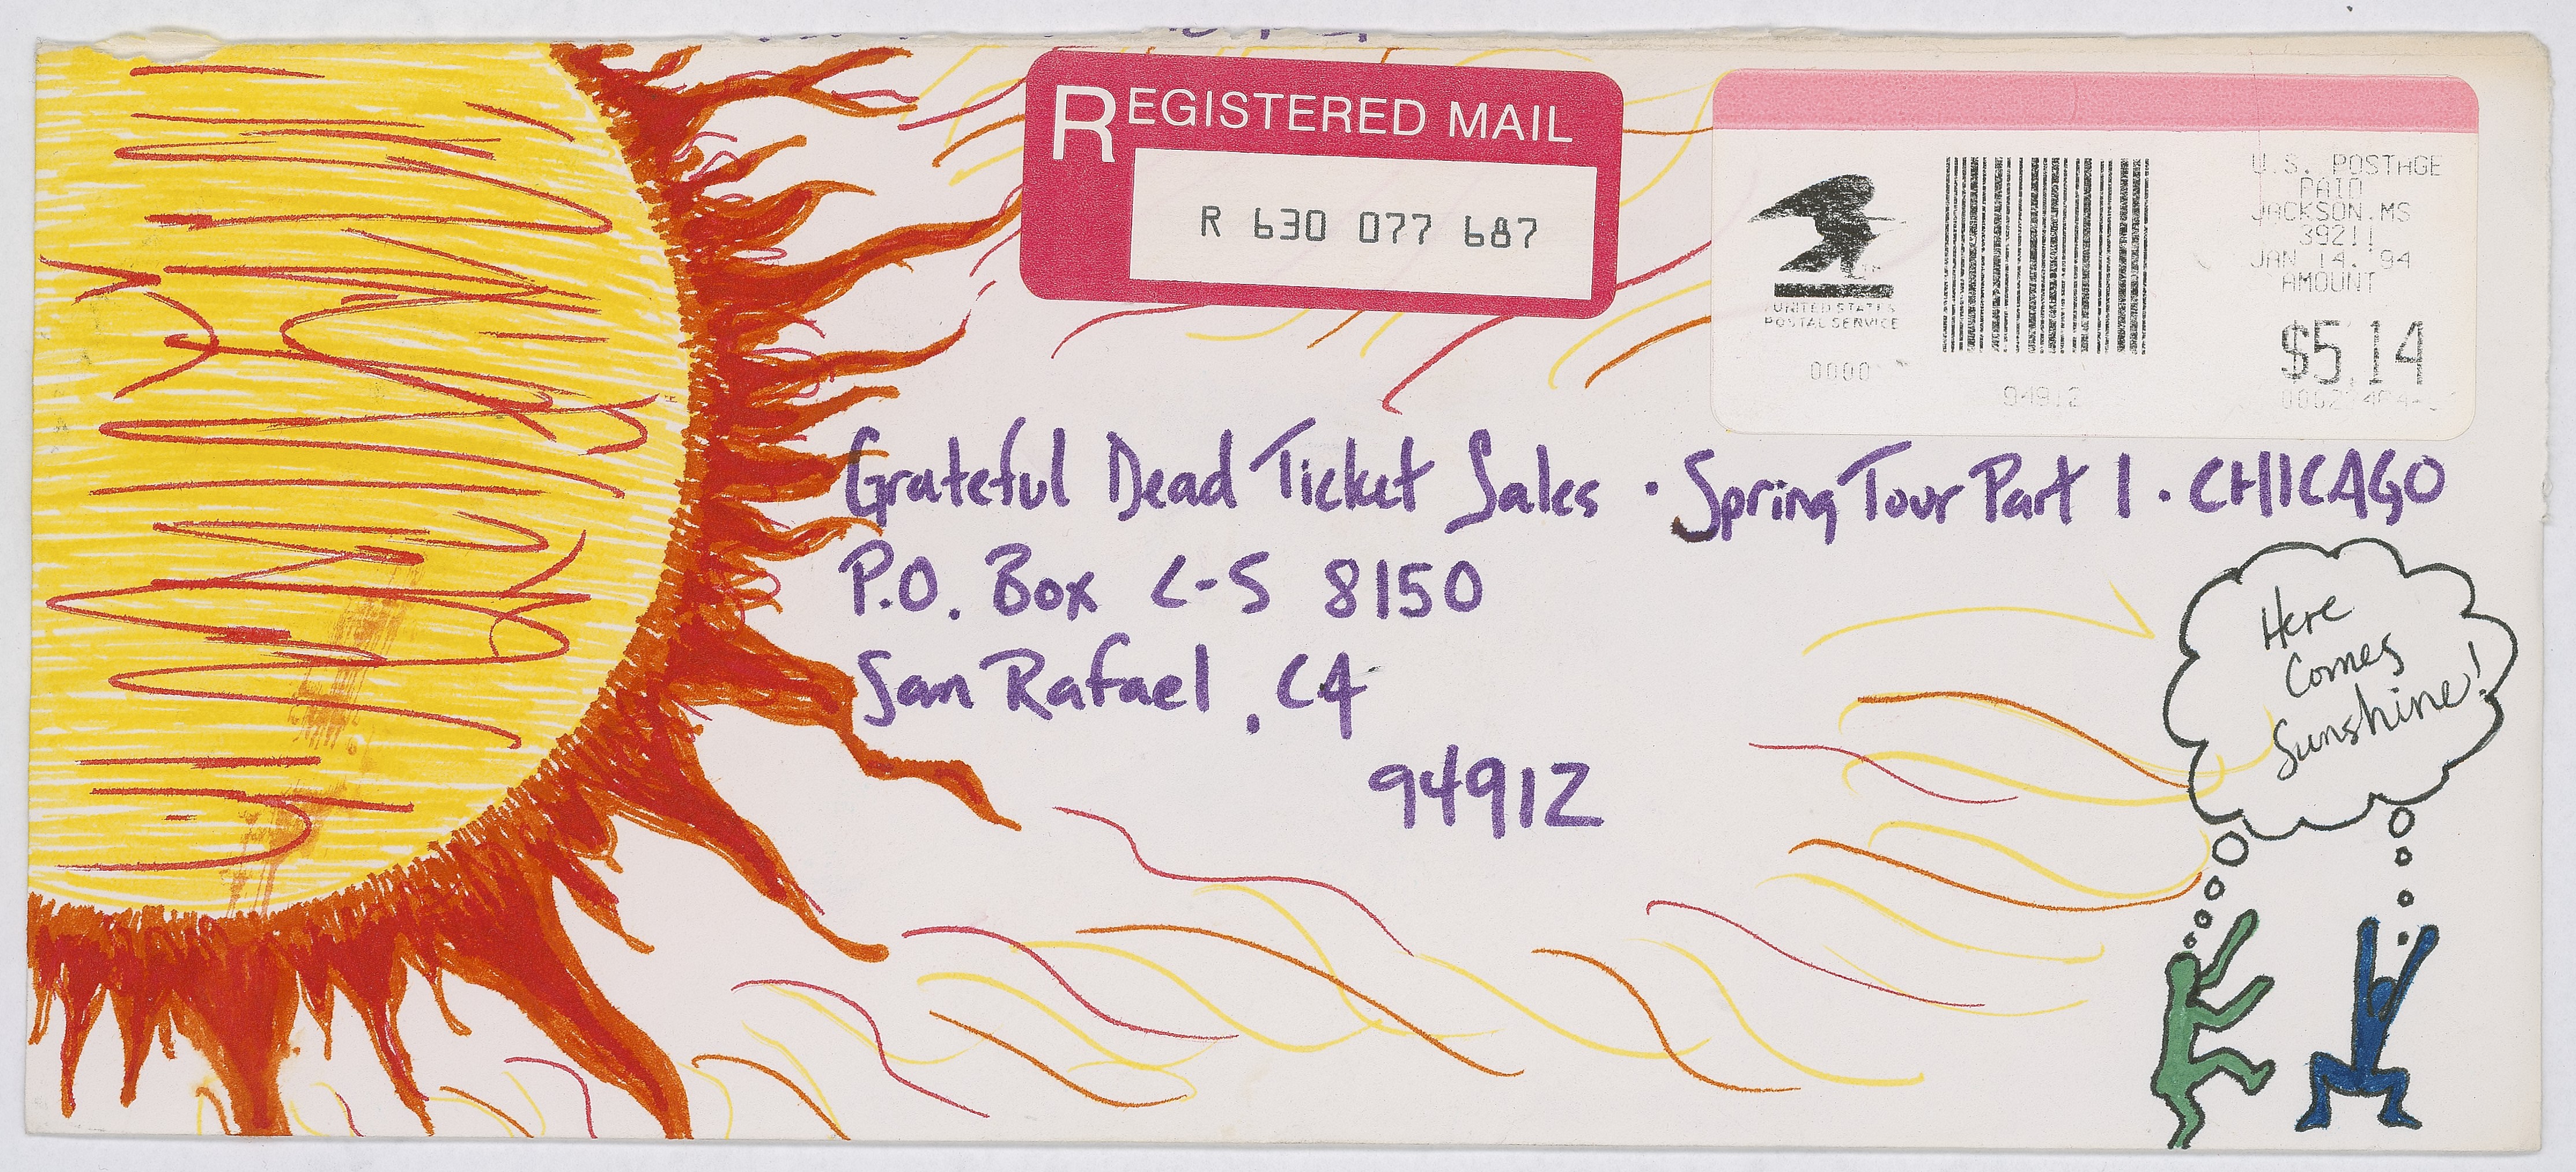 REGISTERED MAIL
R 630 077 687
UNITED STATES
POSTAL SERVICE
0000
94912
U.S. POSTAGE
PAID
JACKSON,MS
39211
JAN 14, '94
AMOUNT
$5.14
Grateful Dead Ticket Sales · Spring Tour Part 1 · CHICAGO
P.O. Box C-S 8150
San Rafael, CA
94912
Here
Comes
Sunshine!